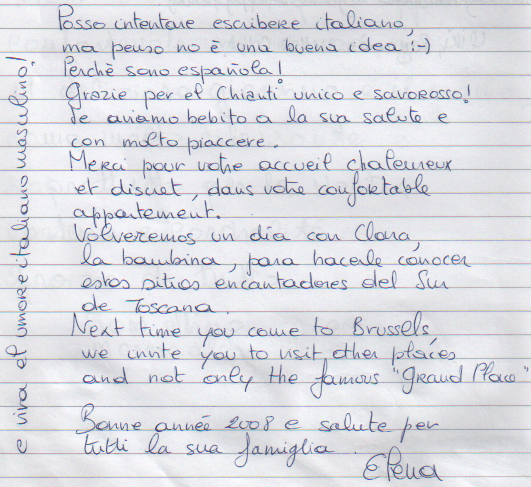 Posso intentare escribere italiano,
ma penso no è una buena idea :-)
Perchè sono española!
Grazie per el Chianti unico e savorosso!
Je aviamo bebito a la sua salute e
con molto piaccere.
Merci pour votre accueil chaleureux
et discret, dans votre confortable
appartement.
Volveremos un dia con Clara,
la bambina, para hacerle conocer
estos sitios encantadores del Sur
de Toscana.
Next time you come to Brussels,
we invite you to visit other places
and not only the famous "Grand Place"
Bonne année 2008 e salute per
tutti la sua famiglia.
Elena
e viva el umore italiano masculino!